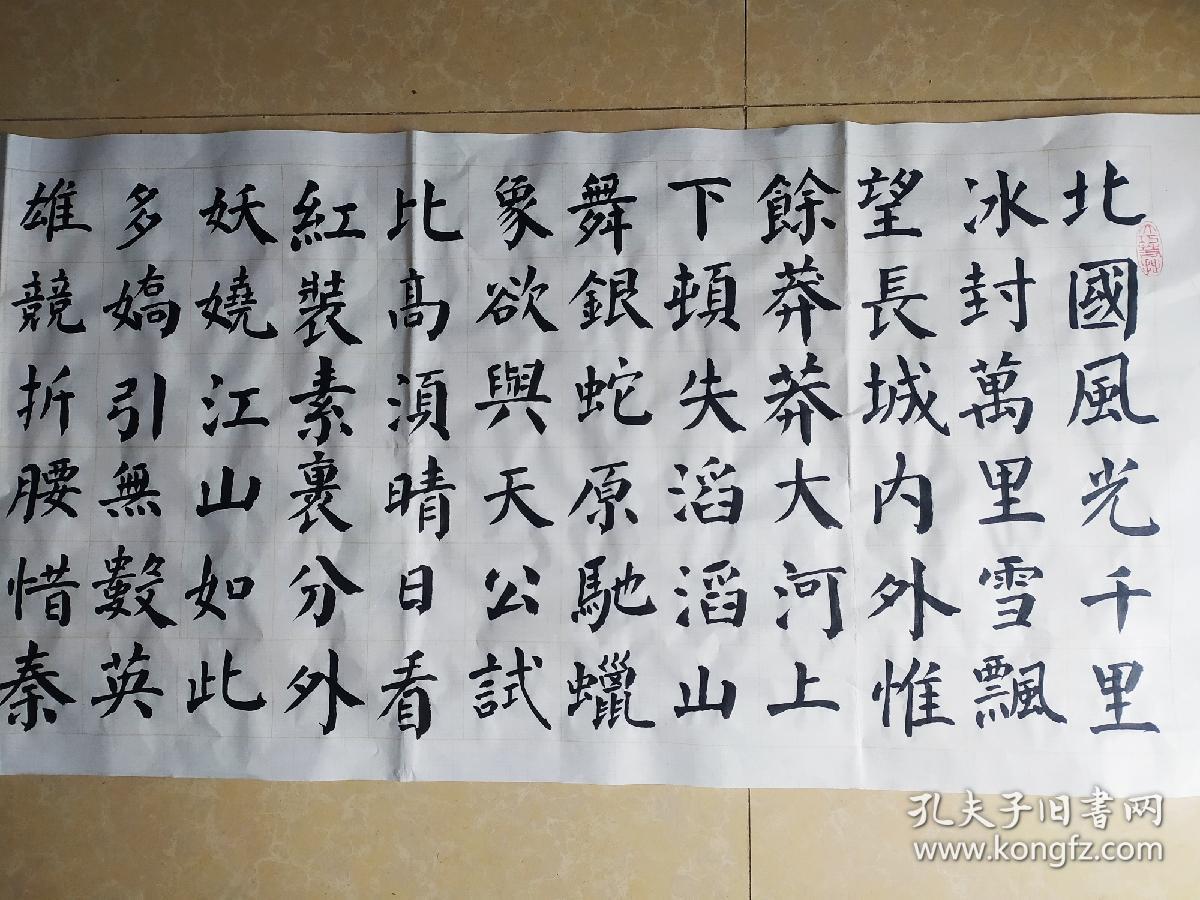 北國風光千里
冰封萬里雪飄
望長城內外惟
餘莽莽大河上
下頓失滔滔山
舞銀蛇原馳蠟
象欲與天公試
比高須晴日看
紅裝素裹分外
妖嬈江山如此
多嬌引無數英
雄競折腰惜秦
孔夫子旧书网
www.kongfz.com